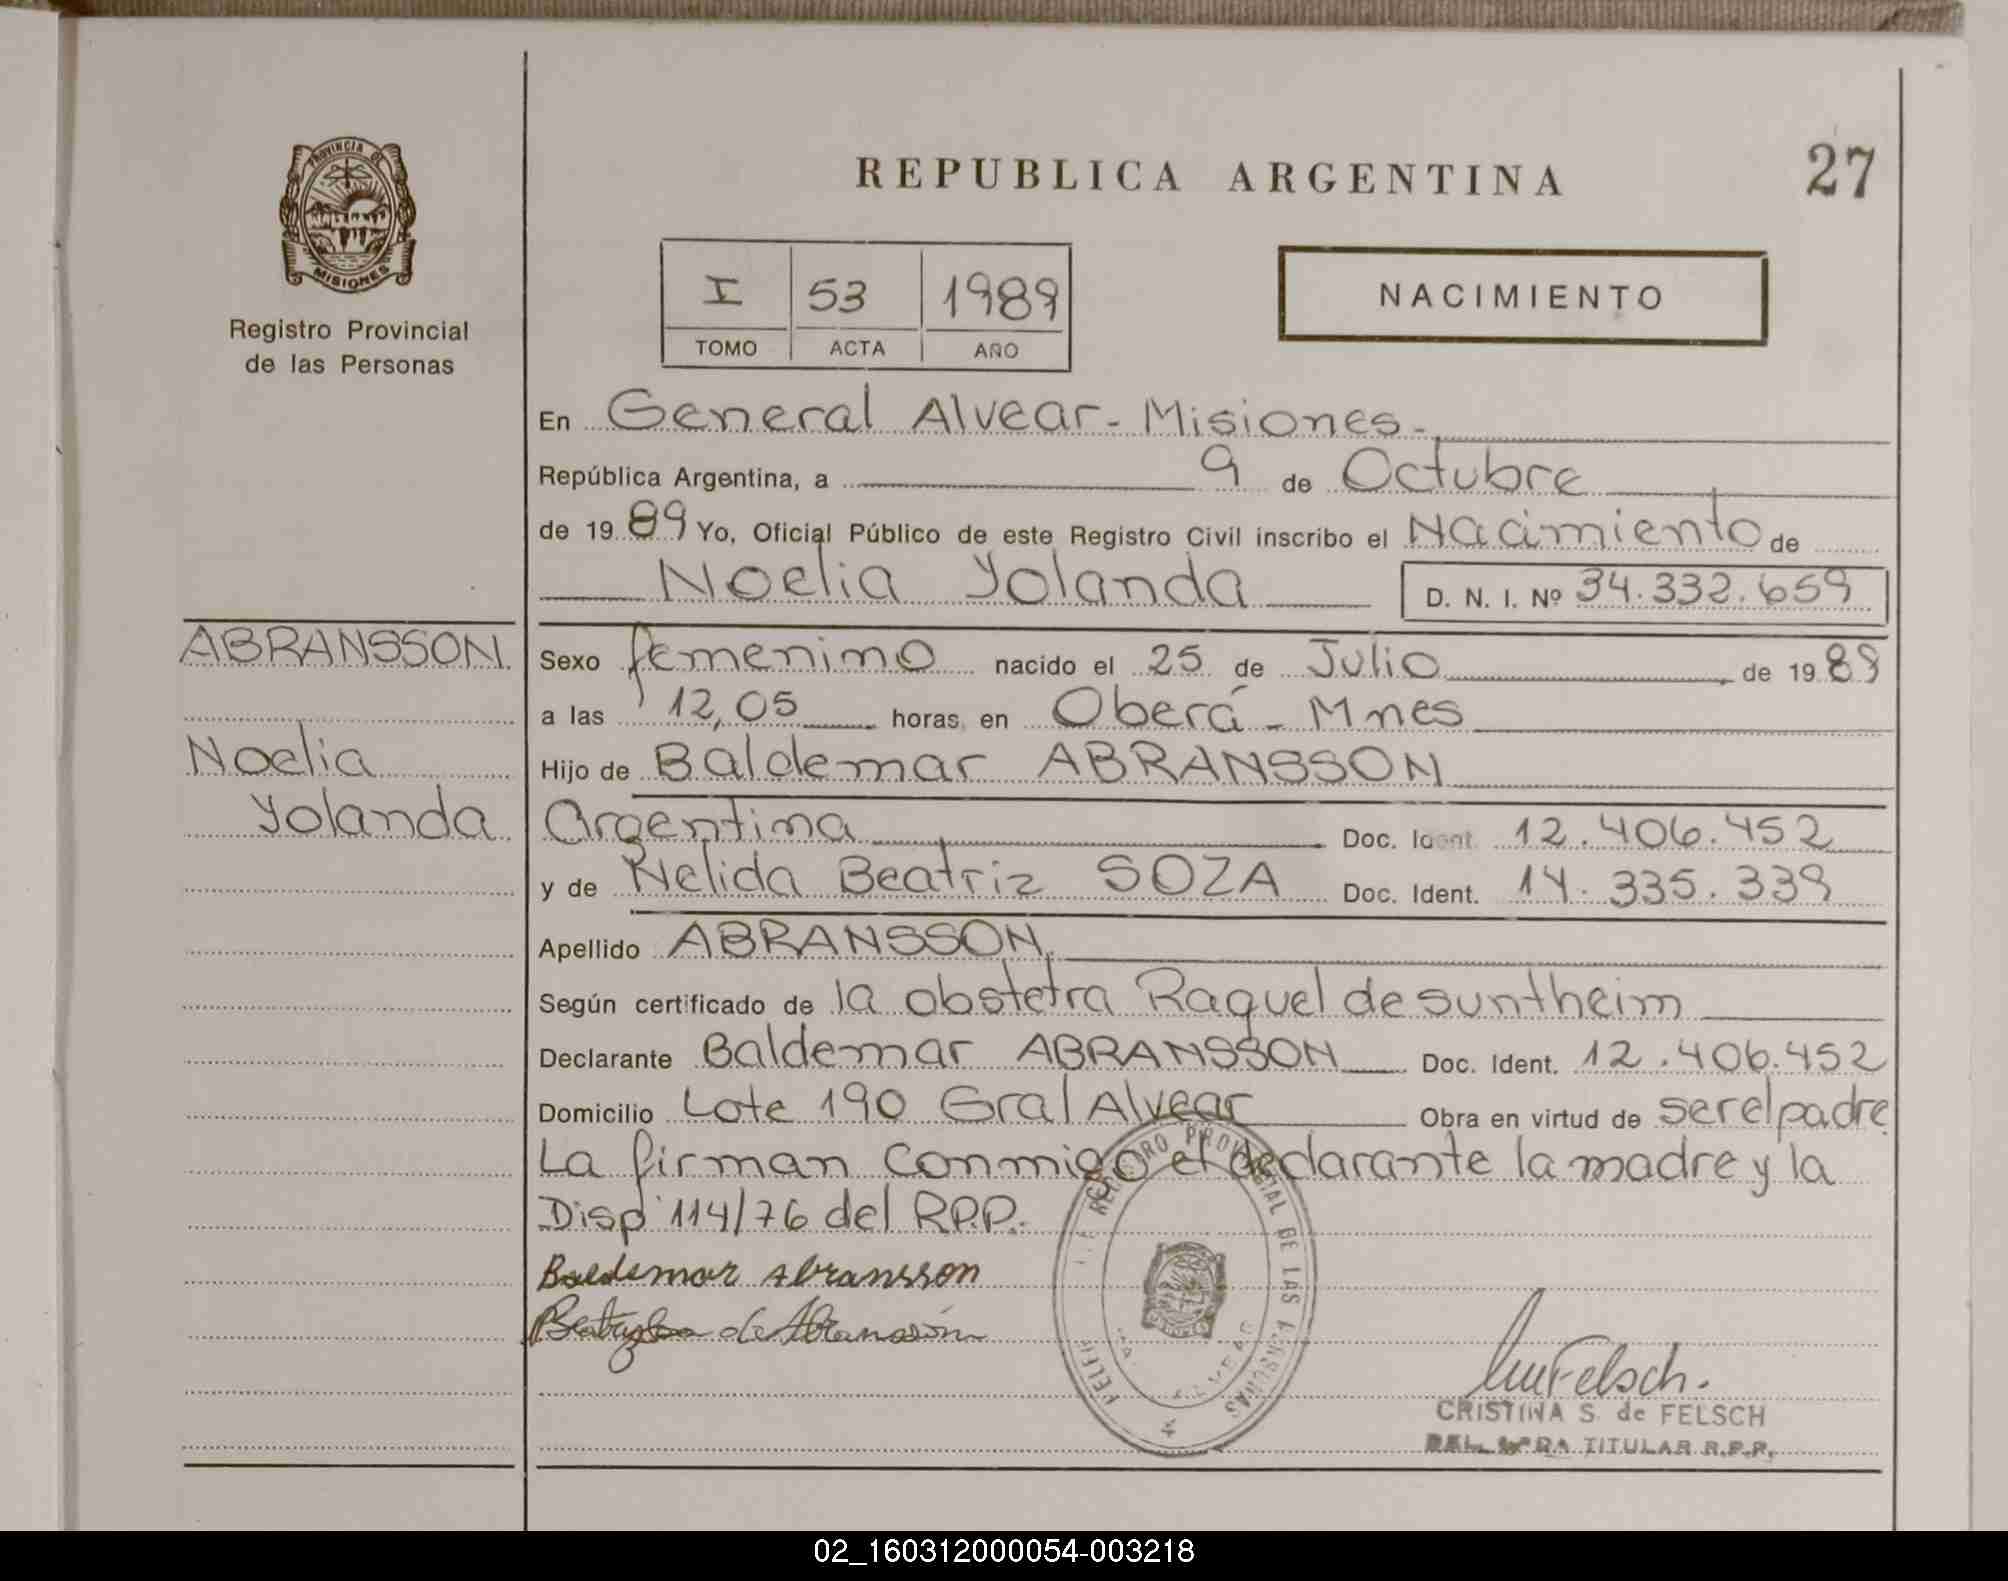 PROVINCIA DE
MISIONES
Registro Provincial
de las Personas
REPUBLICA ARGENTINA
27
I 53 1989
TOMO ACTA AÑO
NACIMIENTO
En General Alvear - Misiones -
República Argentina, a 9 de Octubre
de 19 89 Yo, Oficial Público de este Registro Civil inscribo el Nacimiento de
Noelia Yolanda D. N. I. Nº 34.332.659
ABRANSSON
Noelia
Yolanda
Sexo femenino nacido el 25 de Julio de 19 89
a las 12,05 horas, en Oberá - Mnes
Hijo de Baldemar ABRANSSON
Argentina Doc. Ident. 12.406.452
y de Nelida Beatriz SOZA Doc. Ident. 14.335.339
Apellido ABRANSSON
Según certificado de la obstetra Raquel de suntheim
Declarante Baldemar ABRANSSON Doc. Ident. 12.406.452
Domicilio Lote 190 Gral Alvear Obra en virtud de ser el padre
La firman conmigo el declarante la madre y la
Disp 114/76 del R.P.P.
Baldemar Abransson
de Abransson
REGISTRO PROVINCIAL DE LAS PERSONAS
CRISTINA S. de FELSCH
TITULAR R.P.P.
02_160312000054-003218